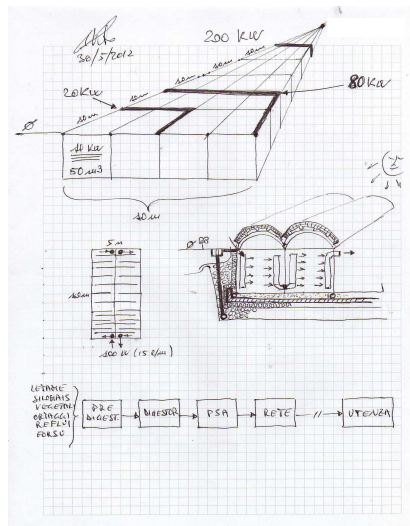 30/5/2012
200 KW
10m
10m
10m
10m
20KW
80KW
10m
Ø
50 m3
10 m
5 m
100 W (15 l/m)
LETAME
VEGETALI
ORTAGGI
REFLUI
FORSU
PRE
DIGEST.
DIGESTOR
PSA
RETE
UTENZA